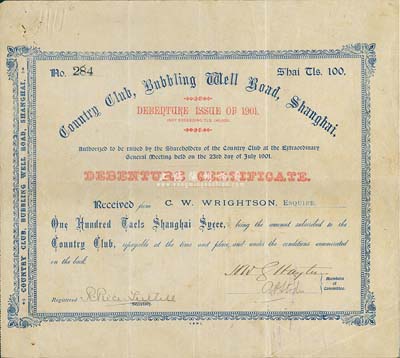 No. 284
S'hai Tls. 100.
Country Club, Bubbling Well Road, Shanghai.
DEBENTURE ISSUE OF 1901.
Authorized to be raised by the Shareholders of the Country Club at the Extraordinary
General Meeting held on the 23rd day of July 1901.
DEBENTURE CERTIFICATE.
Received from C. W. WRIGHTSON, ESQUIRE
One Hundred Taels Shanghai Sycee, being the amount subscribed to the
Country Club, repayable at the time and place, and under the conditions enumerated
on the back.
Members
of
Committee.
Registered
Secretary.
COUNTRY CLUB, BUBBLING WELL ROAD, SHANGHAI